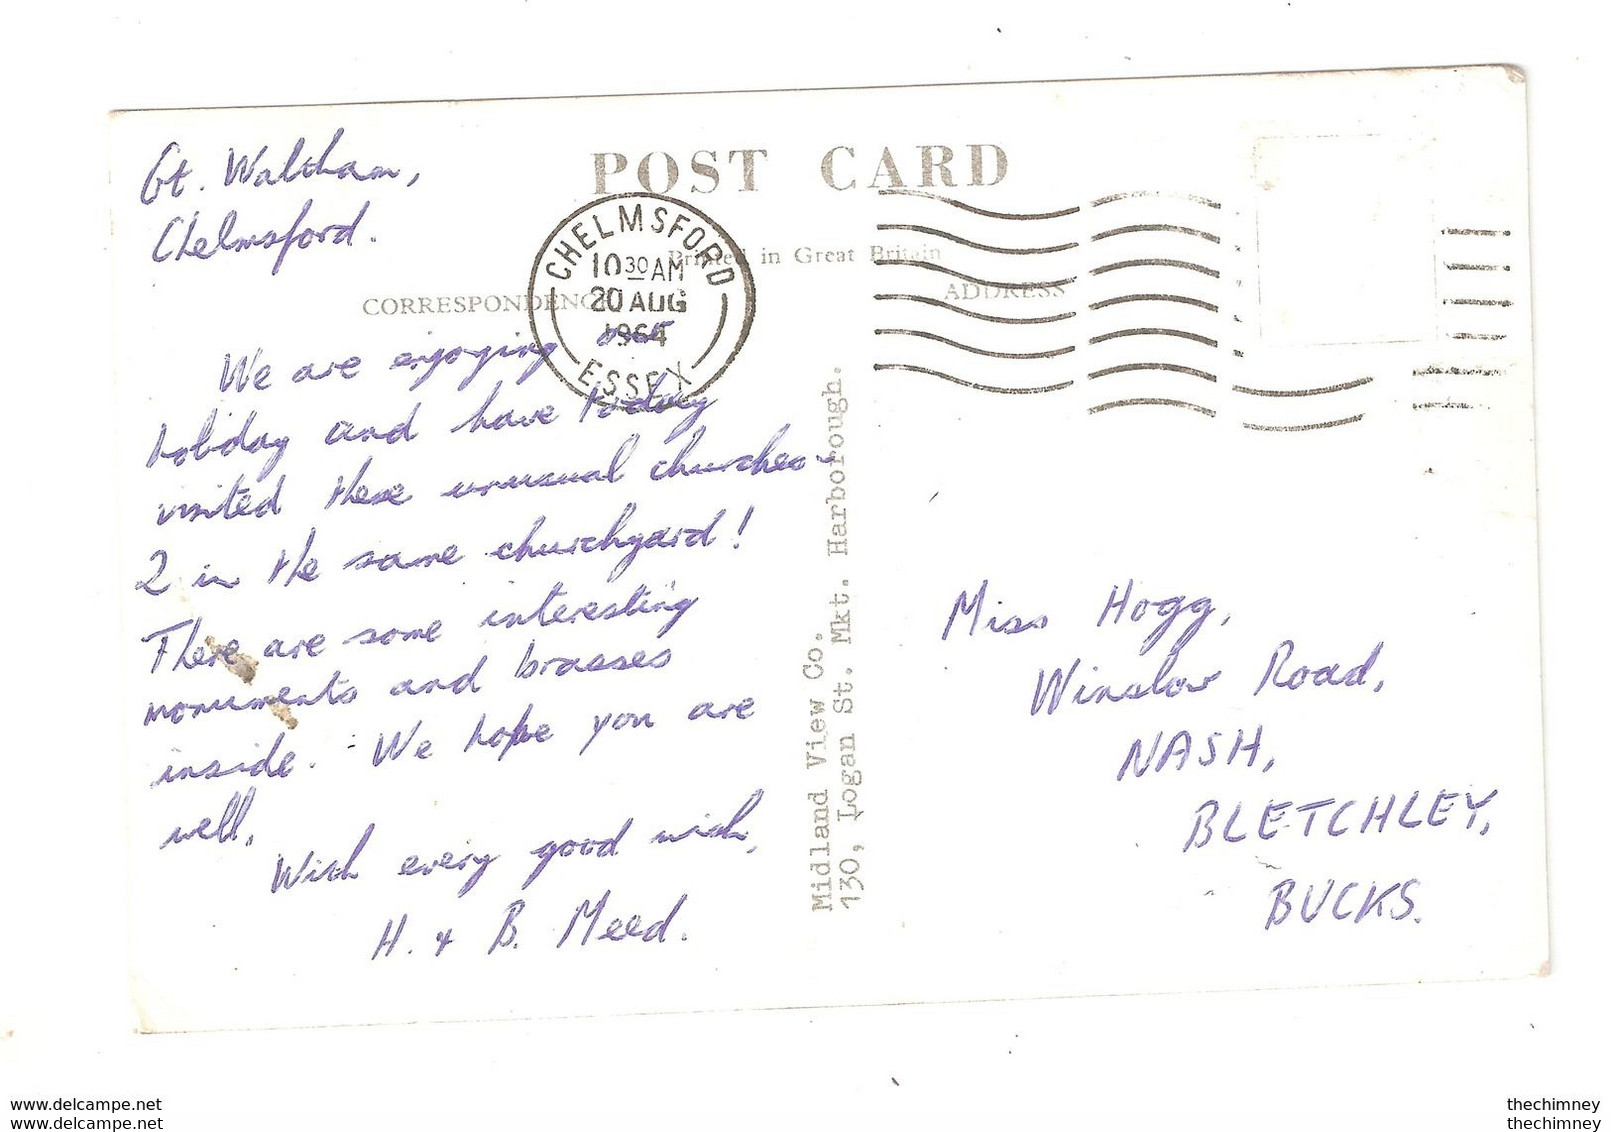 POST CARD
Printed in Great Britain
CORRESPONDENCE
ADDRESS
CHELMSFORD
10 30 AM
20 AUG
1964
ESSEX
Gt. Waltham,
Chelmsford.
We are enjoying our
holiday and have today
visited these unusual churches -
2 in the same churchyard!
There are some interesting
monuments and brasses
inside. We hope you are
well.
With every good wish,
H. & B. Meed.
Midland View Co.
130, Logan St. Mkt. Harborough.
Miss Hogg,
Winslow Road,
NASH,
BLETCHLEY,
BUCKS.
www.delcampe.net
www.delcampe.net
thechimney
thechimney